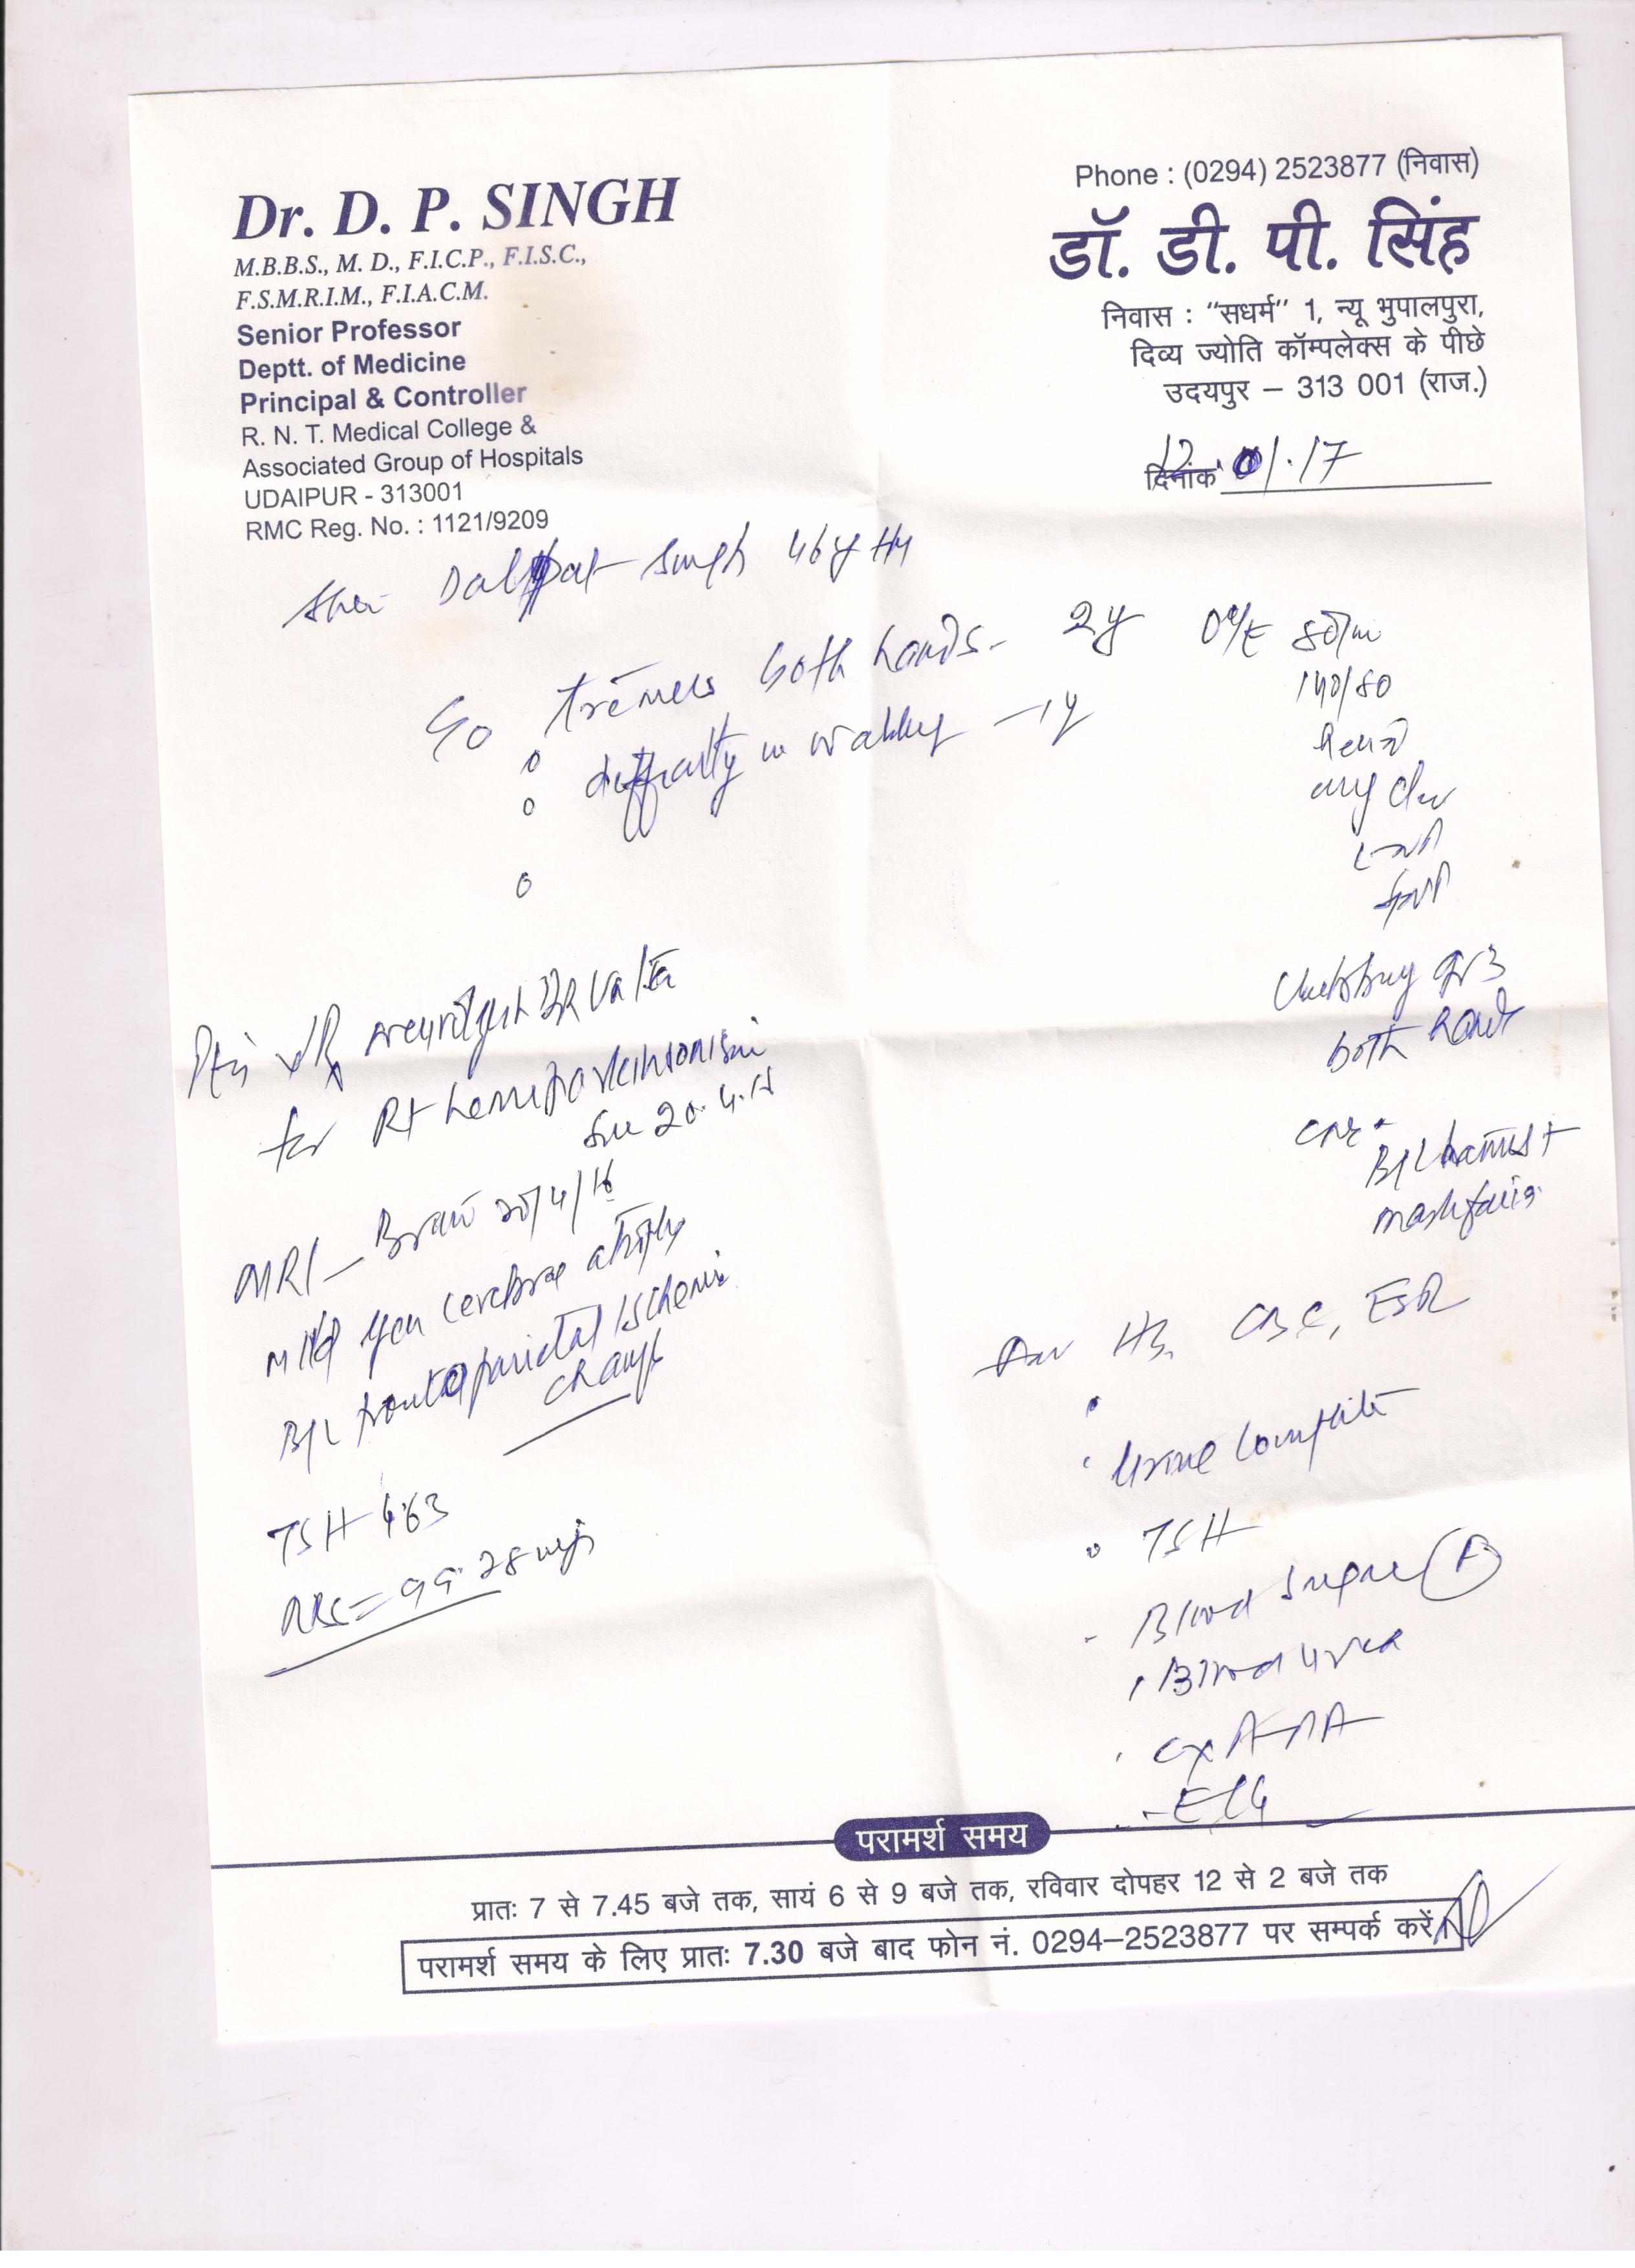 Dr. D. P. SINGH
M.B.B.S., M. D., F.I.C.P., F.I.S.C.,
F.S.M.R.I.M., F.I.A.C.M.
Senior Professor
Deptt. of Medicine
Principal & Controller
R. N. T. Medical College &
Associated Group of Hospitals
UDAIPUR - 313001
RMC Reg. No. : 1121/9209
Phone : (0294) 2523877 (निवास)
डॉ. डी. पी. सिंह
निवास : "सधर्म" 1, न्यू भुपालपुरा,
दिव्य ज्योति कॉम्पलेक्स के पीछे
उदयपुर – 313 001 (राज.)
दिनांक 12.01.17
Dalpat Singh 46y
tremers both hands - 2y
difficulty in walking - 1y
O/E 80/m
140/80
Clubbing gr 3
both hand
CNS
B/L
mask facies
for Rt hemiparkinsonism
20.4.
MRI - Brain 20/4/16
mild gen cerebral atrophy
B/L frontoparietal ischemic
change
TSH 4.63
RBS = 99.28
Adv Hb, CBC, ESR
Urine Complete
TSH
Blood Sugar F
Blood Urea
CxR PA
ECG
परामर्श समय
प्रातः 7 से 7.45 बजे तक, सायं 6 से 9 बजे तक, रविवार दोपहर 12 से 2 बजे तक
परामर्श समय के लिए प्रातः 7.30 बजे बाद फोन नं. 0294–2523877 पर सम्पर्क करें।